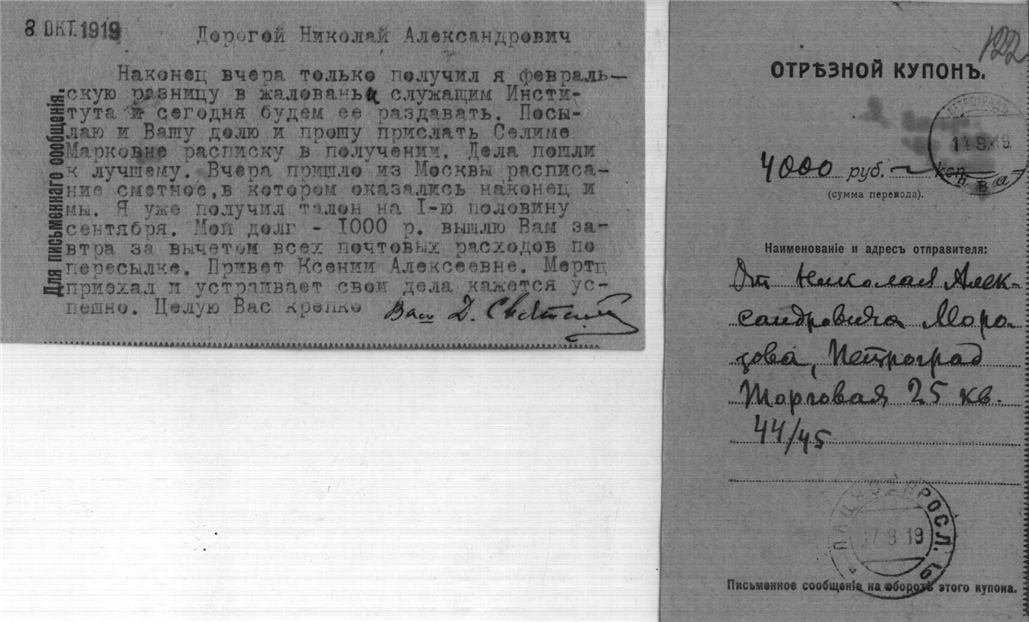 8 ОКТ. 1919
Дорогой Николай Александрович
Наконец вчера только получил я февраль-
скую разницу в жалованьи служащим Инсти-
тута и сегодня будем ее раздавать. Посы-
лаю и Вашу долю и прошу прислать Селиме
Марковне расписку в получении. Дела пошли
к лучшему. Вчера пришло из Москвы расписа-
ние сметное,в котором оказались наконец и
мы. Я уже получил талон на I-ю половину
сентября. Мой долг - 1000 р. вышлю Вам за-
втра за вычетом всех почтовых расходов по
пересылке. Привет Ксении Алексеевне. Мертц
приехал и устраивает свои дела кажется ус-
пешно. Целую Вас крепко
Ваш Д. Святский
Для письменнаго сообщения.
122
ОТРѢЗНОЙ КУПОНЪ.
4000 руб. — коп.
(сумма перевода).
Наименованіе и адресъ отправителя:
От Николая Алек-
сандровича Моро-
зова, Петроград
Торговая 25 кв.
44/45
17 9 19
Письменное сообщеніе на оборотѣ этого купона.